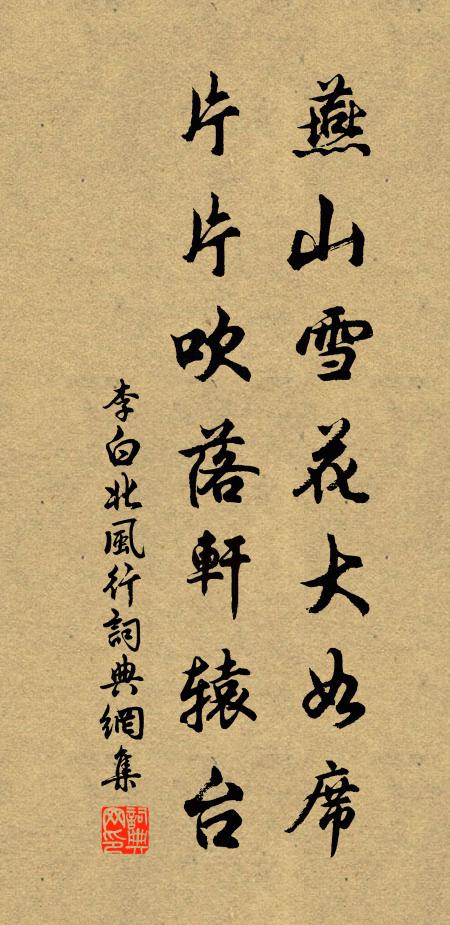 燕山雪花大如席
片片吹落軒辕台
李白北風行詞典網集
詞典
网印